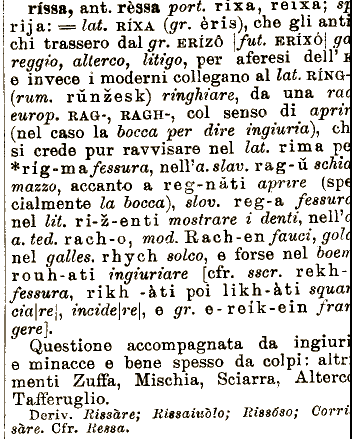 ríssa, ant. rèssa port. rixa, reixa; sp
rija: = lat. RÍXA (gr. èris), che gli anti
chi trassero dal gr. ERÍZÔ [fut. ERÍXÔ] ga
reggio, alterco, litigo, per aferesi dell' E
e invece i moderni collegano al lat. RÍNG-
(rum. rŭnžesk) ringhiare, da una rad
europ. RAG-, RAGH-, col senso di aprir
(nel caso la bocca per dire ingiuria), ch
si crede pur ravvisare nel lat. rima pe
*rig-ma fessura, nell'a. slav. rag-ŭ schia
mazzo, accanto a reg-näti aprire (spe
cialmente la bocca), slov. reg-a fessura
nel lit. ri-ž-enti mostrare i denti, nell'a
a. ted. rach-o, mod. Rach-en fauci, gola
nel galles. rhych solco, e forse nel boem
rouh-ati ingiuriare [cfr. sscr. rekh-
fessura, rikh -âti poi likh-àti squar
cia[re], incide[re], e gr. e-reik-ein fran
gere].
Questione accompagnata da ingiuri
e minacce e bene spesso da colpi: altri
menti Zuffa, Mischia, Sciarra, Alterco
Tafferuglio.
Deriv. Rissàre; Rissaiuòlo; Rissóso; Corri
sàre. Cfr. Ressa.